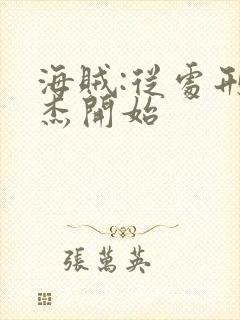 海賊:從處刑
杰開始
張萬英